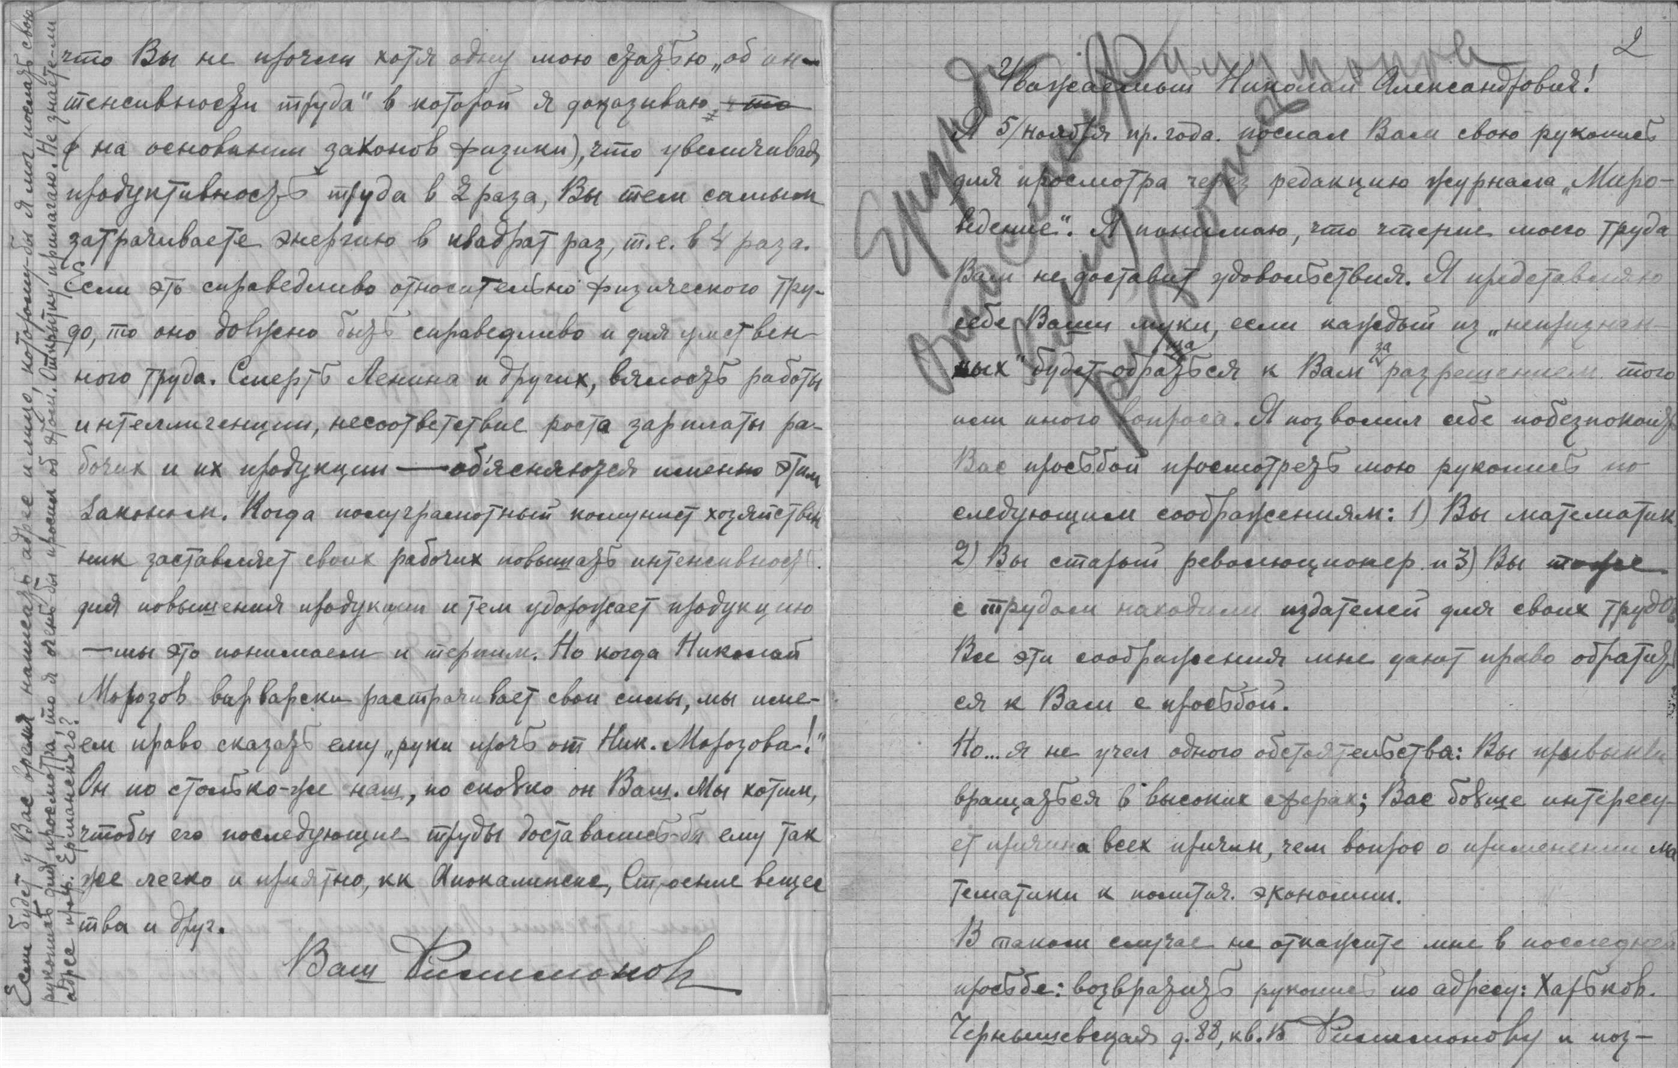 что Вы не прочли хотя одну мою статью „об ин-
тенсивности труда" в которой я доказываю,
(на основании законов физики), что увеличивая
продуктивность труда в 2 раза, Вы тем самым
затрачиваете энергию в квадрат раз, т.е. в 4 раза.
Если это справедливо относительно физического тру-
до, то оно должно быть справедливо и для умствен-
ного труда. Смерть Ленина и других, вялость работы
интеллигенции, несоответствие роста зарплаты ра-
бочих и их продукции — об'ясняются именно этим
законом. Когда полуграмотный комунист хозяйствен
ник заставляет своих рабочих повышать интенсивность
для повышения продукции и тем удорожает продукцию
— мы это понимаем и терпим. Но когда Николай
Морозов варварски растрачивает свои силы, мы име-
ем право сказать ему „руки прочь от Ник. Морозова!"
Он по столько-же наш, по сколько он Ваш. Мы хотим,
чтобы его последующие труды доставались-бы ему так
же легко и приятно, кк Апокалипсис, Строение вещес
тва и друг.
Ваш Филимонов
Если будет у Вас время написать адрес и лицо, которому-бы я мог послать свою
рукопись для просмотра, то я очень бы просил об этом. Открытку прилагаю. Не знаете ли
адрес проф. Ерманского?
2
Уважаемый Николай Александрович!
Я 5/ноября пр. года. послал Вам свою рукопись
для просмотра через редакцию журнала „Миро-
ведение". Я понимаю, что чтение моего труда
Вам не доставит удовольствия. Я представляю
себе Ваши муки, если каждый из „непризнан-
ных" будет обраться к Вам за разрешением того
или иного вопроса. Я позволил себе побезпокоить
Вас просьбой просмотреть мою рукопись по
следующим соображениям: 1) Вы математик
2) Вы старый революционер и 3) Вы тоже
с трудом находили издателей для своих трудов
Все эти соображения мне дают право обратить
ся к Вам с просьбой.
Но... я не учел одного обстоятельства: Вы привыкли
вращаться в высоких сферах; Вас больше интересу
ет причина всех причин, чем вопрос о применении ма
тематики к политич. экономии.
В таком случае не откажите мне в последней
просьбе: возвратить рукопись по адресу: Харьков.
Чернышевская д. 88, кв. 15 Филимонову и поз-